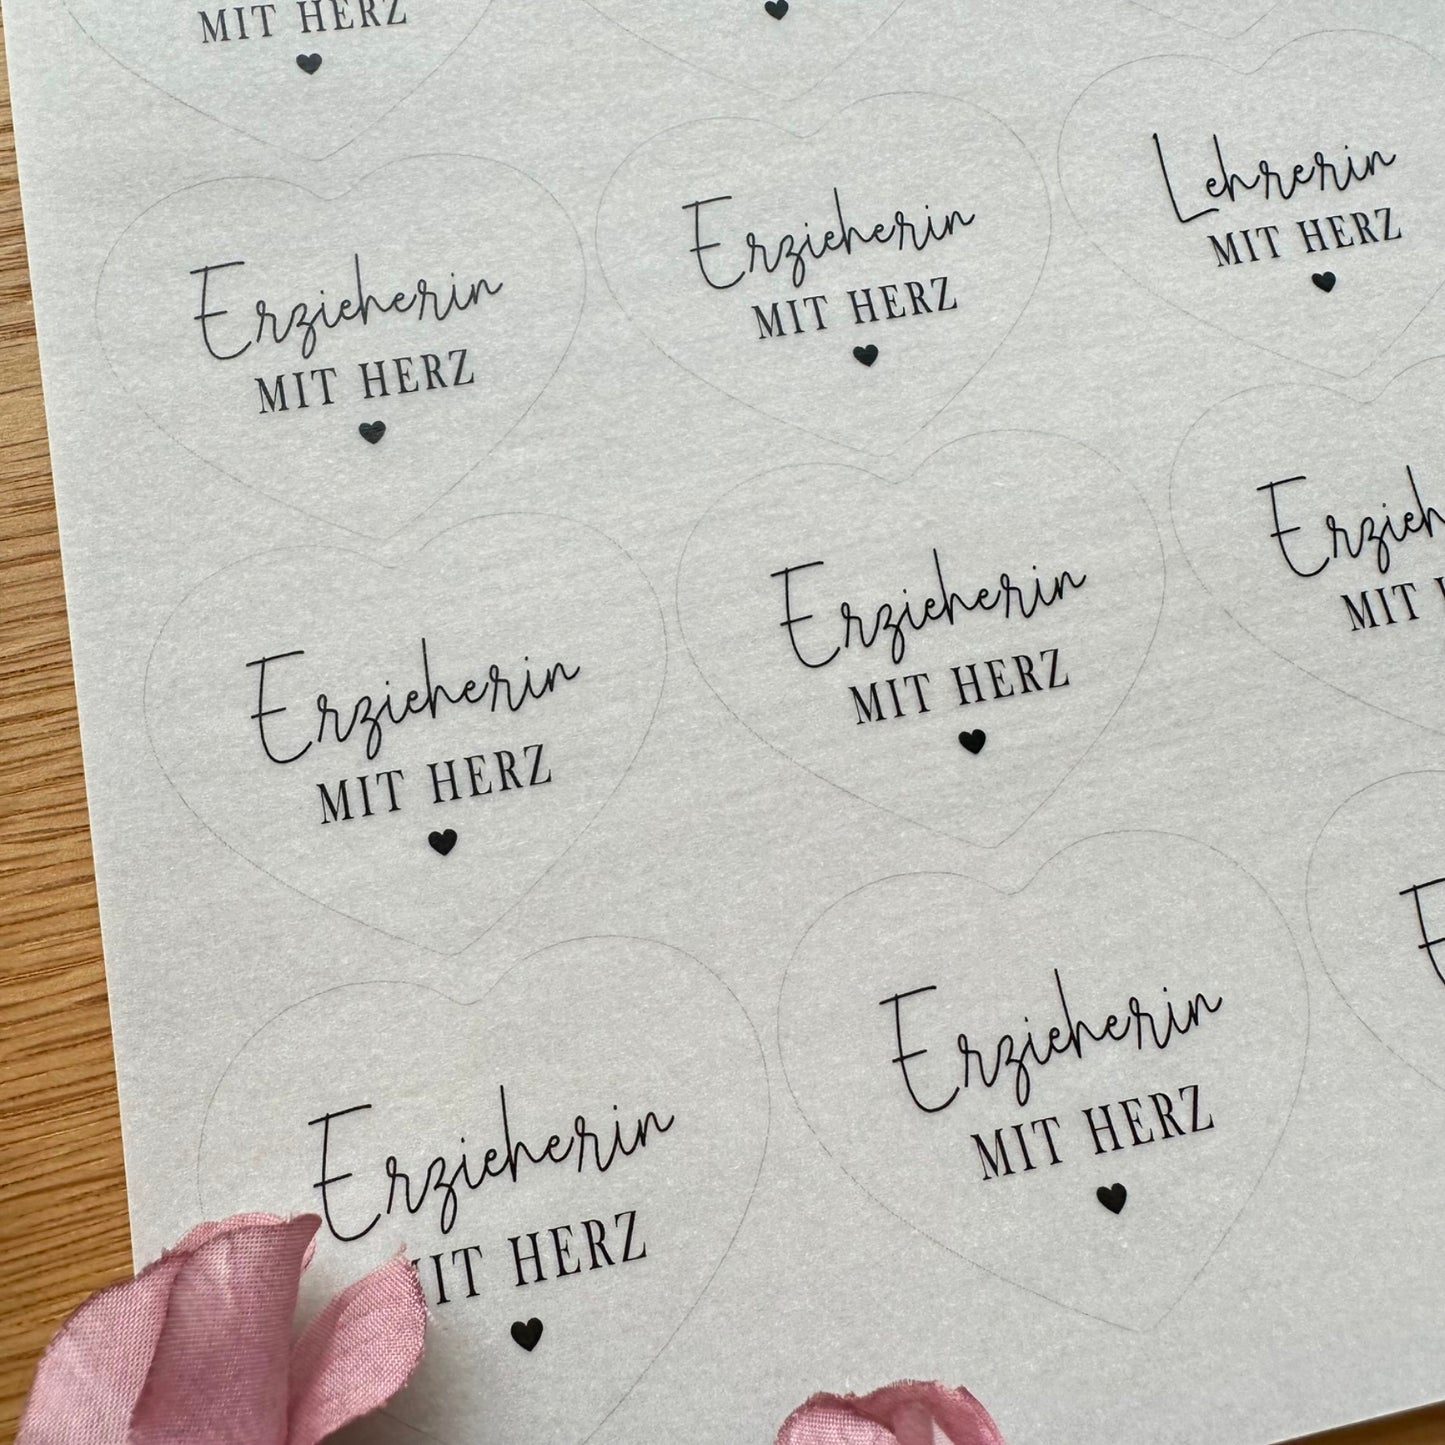 MIT HERZ
Erzieherin
MIT HERZ
Erzieherin
MIT HERZ
Lehrerin
MIT HERZ
Erzieherin
MIT HERZ
Erzieherin
MIT HERZ
MIT
Erzieherin
MIT HERZ
Erzieherin
MIT HERZ